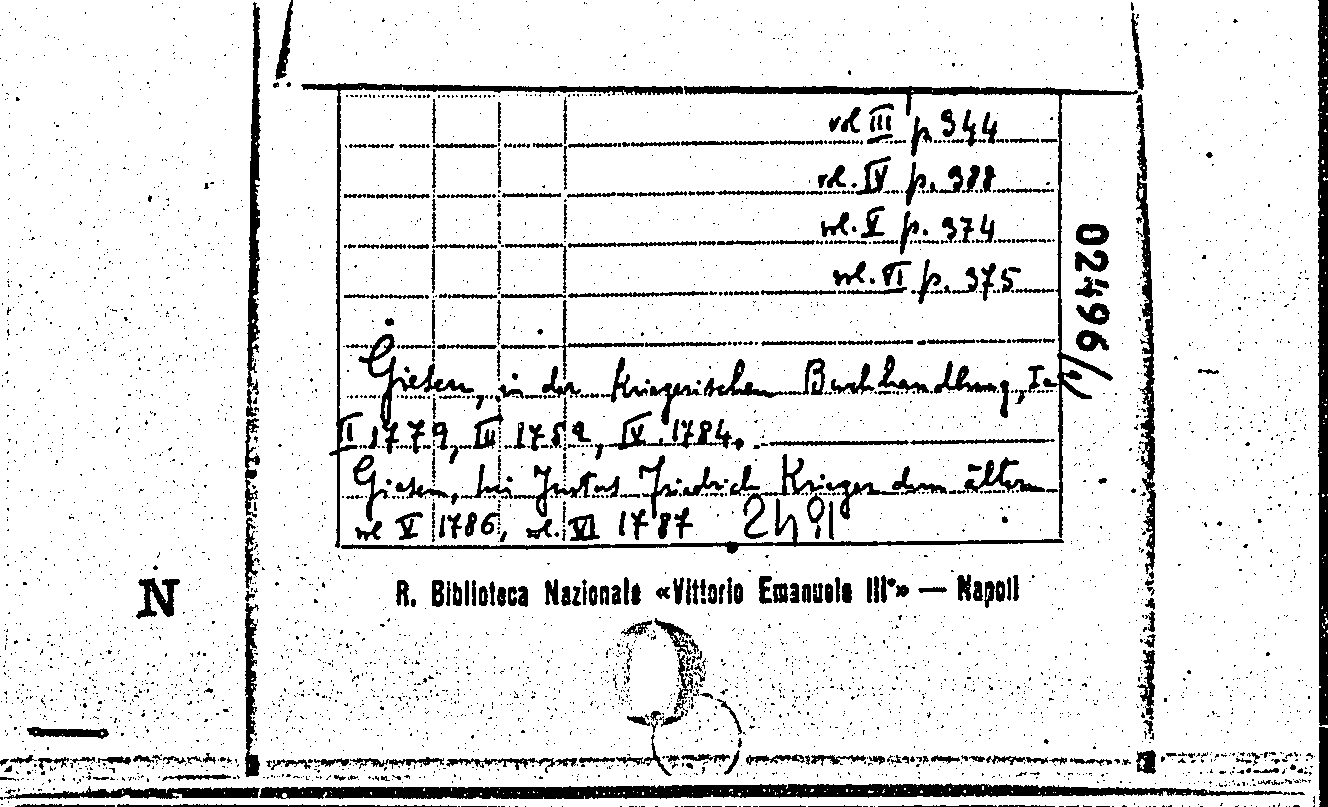 vol III p. 344
vol. IV p. 388
vol. V p. 374
vol. VI p. 375
02496/
Giesen, in der Kriegerischen Buchhandlung, I e
II 1779, III 1782, IV. 1784.
Giesen, bei Justus Friedrich Krieger dem ältern
vol V 1786, vol. VI 1787
R. Biblioteca Nazionale «Vittorio Emanuele III°» — Napoli
N